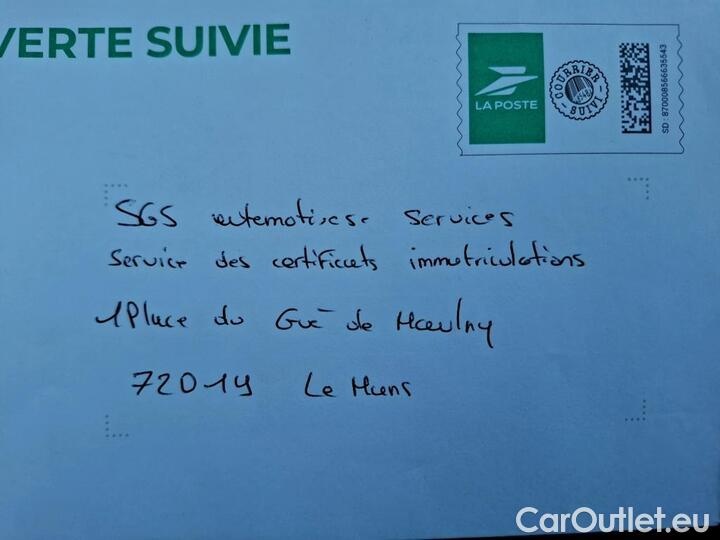 VERTE SUIVIE
LA POSTE
COURRIER SUIVI
SD : 870008566635543
SGS automotives services
Service des certificats immatriculations
1 Place du Gué de Maulny
72019 Le Mans
CarOutlet.eu